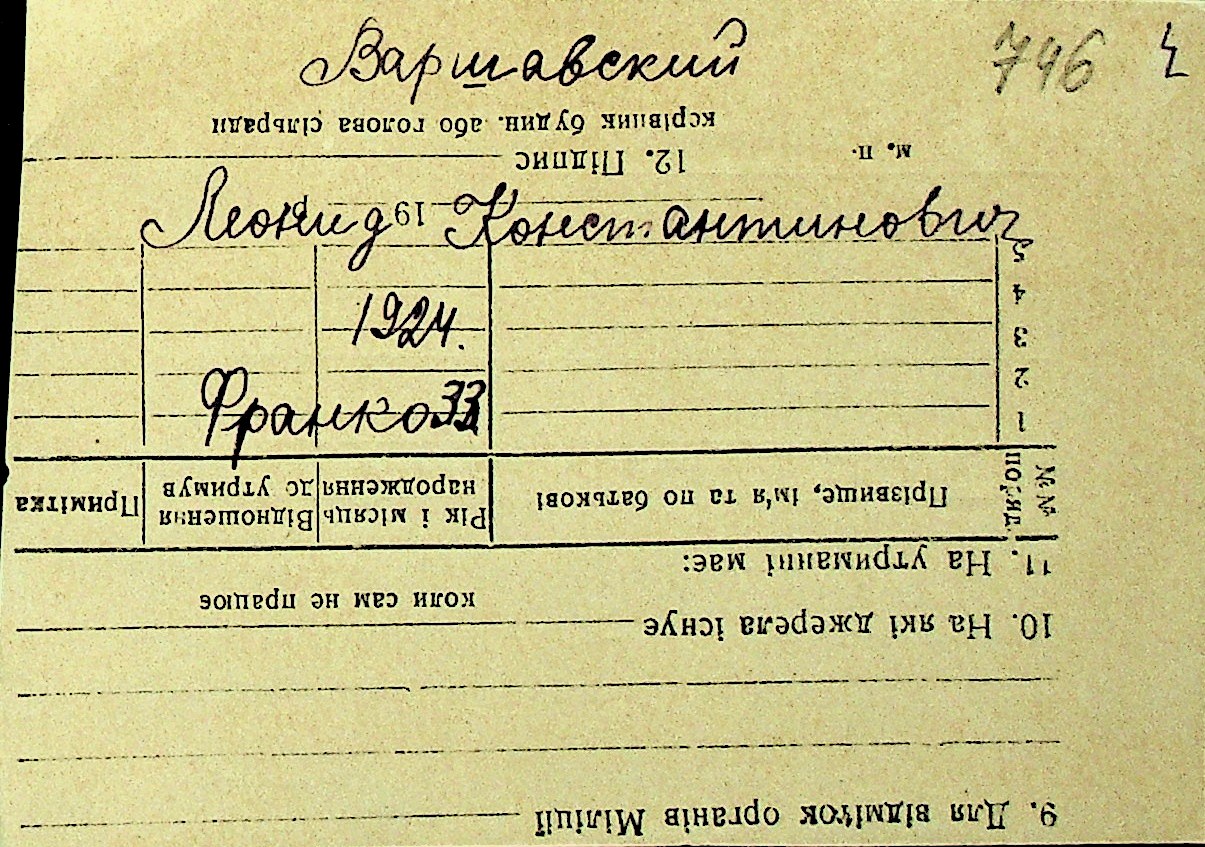 Варшавский
746
Леонид Константинович
1924.
Франко 33
9. Для відміток органів Міліції
10. На які джерела існує
коли сам не працює
11. На утриманні має:
№№ поряд.
Прізвище, ім'я та по батькові
Рік і місяць народження
Відношення до утримув
Примітка
1
2
3
4
5
19 р.
12. Підпис
м. п.
керівник будин. або голова сільради